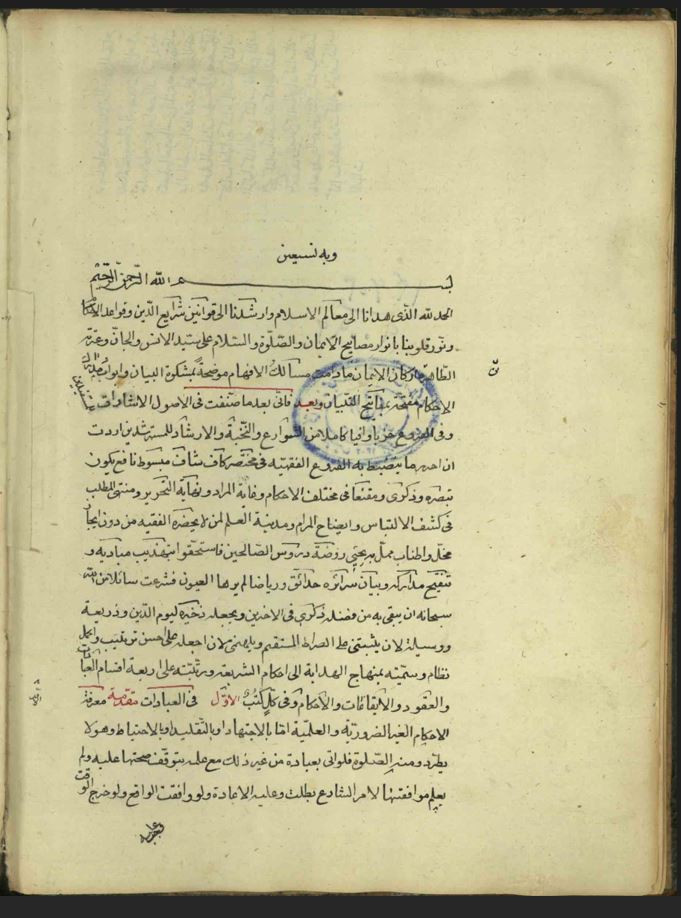 وبه نستعين
بسم الله الرحمن الرحيم
الحمد لله الذی هدانا الی معالم الاسلام وارشدنا الی قوانین شرایع الدین وقواعد الاحکام
ونور قلوبنا بانوار مصابیح الایمان والصلوة والسلام علی سید الانس والجان وعترته
الطاهرة ارکان الایمان مادامت مسالک الافهام موضحة بمشکوة البیان وابواب
الاحکام مفتحة بمفاتیح التبیان وبعد فانی بعد ما صنفت فی الاصول الاشارات
وفی الفروع کاملا من الشوارع والنخبة والارشاد للمسترشدین اردت
ان احرر ما ینضبط به الفروع الفقهیة فی مختصر کاف شاف مبسوط نافع یکون
تبصرة وذکری ومقنعا فی مختلف الاحکام وغایة المراد ونهایة التحریر ومنتهی المطلب
فی کشف الالتباس وایضاح المرام ومدینة العلم لمن لا یحضره الفقیه من دون ایجاز
مخل واطناب ممل یجتنی روضة دروس الصالحین فاستحقوا بتهذیب مبادیه و
تنقیح مدارکه وبیان سرائره حدائق وریاضا لم یرها العیون فشرعت سائلا من الله
سبحانه ان یبقی به من فضله ذکری فی الاخرین ویجعله ذخیرة لیوم الدین وذریعة
ووسیلة لان یثبتنی علی الصراط المستقیم ویلهمنی لان اجعله علی احسن ترتیب واکمل
نظام وسمیته بمنهاج الهدایة الی احکام الشریعة ورتبته علی اربعة اقسام العبادات
والعقود والایقاعات والاحکام وفی کل کتب الاول فی العبادات مقدمة معرفة
الاحکام الغیر الضروریة والعلمیة اما بالاجتهاد او بالتقلید او بالاحتیاط وهو لا
یطرد ومنه الصلوة فلو اتی بعبادة من غیر ذلک مع علمه بتوقف صحتها علیه ولم
یعلم موافقتها لامر الشارع بطلت وعلیه الاعادة ولو وافقت الواقع ولو خرج الوقت